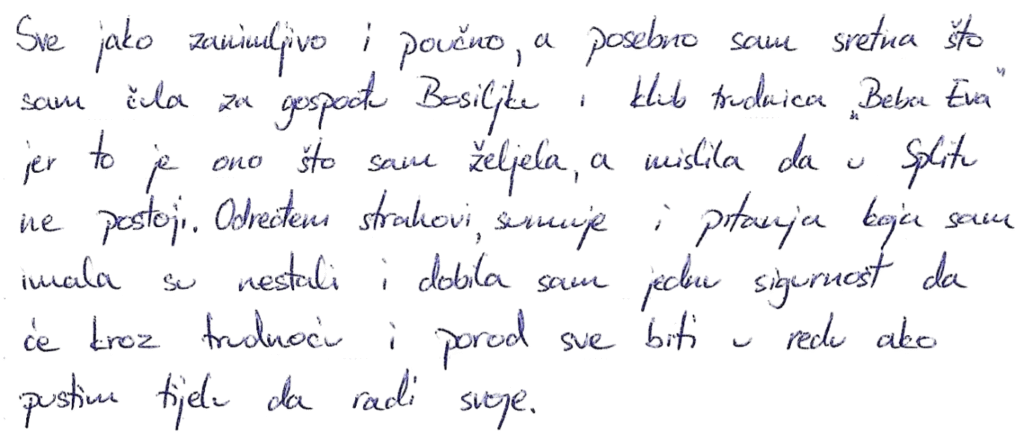 Sve jako zanimljivo i poučno, a posebno sam sretna što
sam čula za gospođu Bosiljku i klub trudnica „Beba Eva"
jer to je ono što sam željela, a mislila da u Splitu
ne postoji. Određeni strahovi, sumnje i pitanja koja sam
imala su nestali i dobila sam jednu sigurnost da
će kroz trudnoću i porod sve biti u redu ako
pustim tijelu da radi svoje.